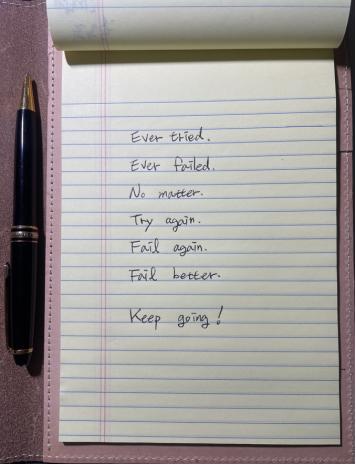 Ever tried.
Ever failed.
No matter.
Try again.
Fail again.
Fail better.
Keep going!